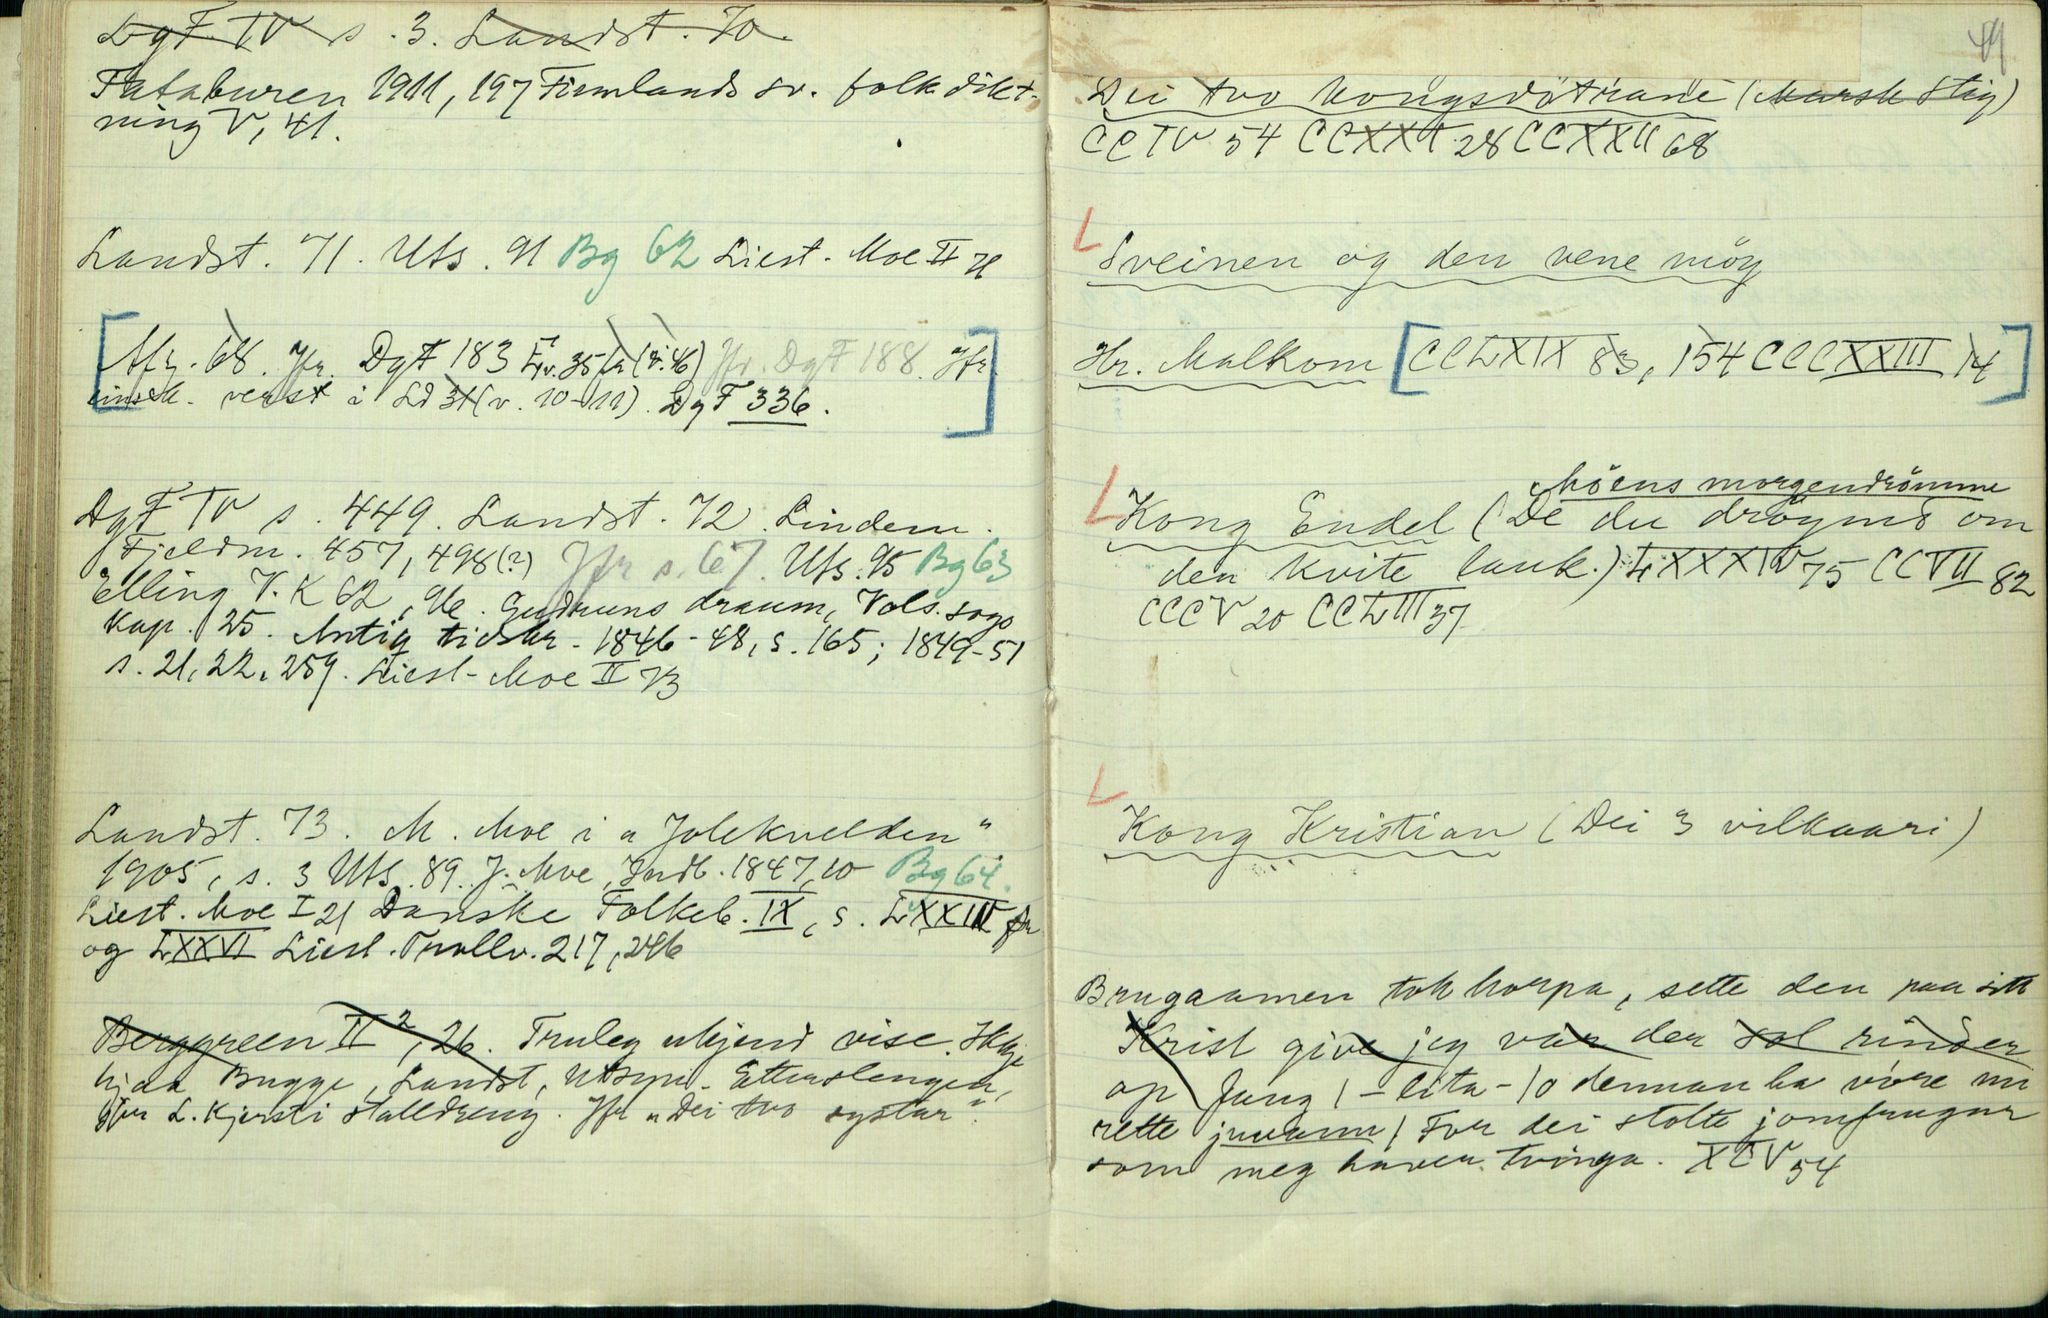 DgF IV s. 3. Landst. 70.
Fataburen 1911, 197 Finnlands sv. folkdikt-
ning V, 41.
Landst. 71. Uts. 91 Bg 62 Liest. Moe II 71
Afz. 68. Jfr. DgF 183 (v. 46) Jfr. DgF 188. Jfr
einsk. verst i Ld 31 (v. 10-11). DgF 336.
DgF IV s. 449. Landst. 72. Lindem.
Fjeldm. 457, 498(?) Jfr s. 67. Uts. 95 Bg 63
Elling V. K 62, Gudruns draum, Vols. saga
Kap. 25. Antiq tidskr. 1846-48, s. 165; 1849-51
s. 21, 22, 259. Liest-Moe II 73
Landst. 73. M. Moe i "Jolekvelden"
1905, s. 3 Uts. 89. J. Moe, Indb. 1847, 10 Bg 64.
Liest. Moe I 21 Danske Folkeb. IX, s. LXXIII fr
og LXXVI Liest. Trollv. 217, 246
Berggreen II², 26. Truleg ukjend vise.
hjaa Bugge, Landst, Utsyn. Etterslengen,
fyr L. Kjersti stalldreng. Jfr "Dei two systar".
49
Dei two kongsdötrane (Marsk Stig)
CCIV 54 CCXXI 28 CCXXII 68
Sveinen og den vene möy
Hr. Malkom [CCLXIX 83, 154 CCCXXIII 14]
Möens morgendrömme
Kong Endel (De du dröymd om
den kvite lauk.) LXXXIV 75 CCVII 82
CCCV 20 CCLIII 37
Kong Kristian (Dei 3 vilkaari)
Brugaamen tok horpa, sette den paa sitt
Krist give jeg var der sol rinder
op Jung 1 - lita - 10 derman ha vore mi
rette juvann / For dei stolte jomfrugur
som meg haver tvinga. XCV 54